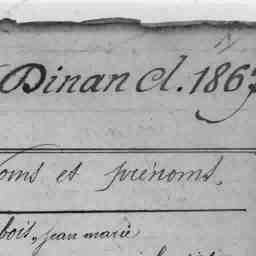 Dinan cl. 1867
oms et prénoms,
bois, jean marie